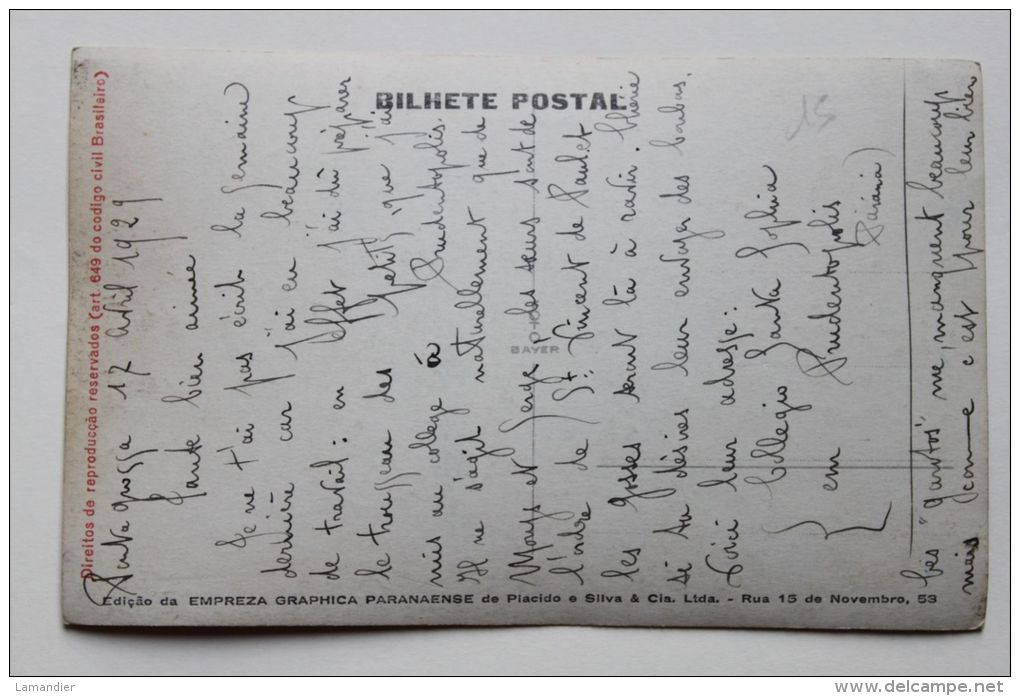 Direitos de reproducção reservados (art. 649 do codigo civil Brasileiro)
BILHETE POSTAL
15
BAYER
Ponta grossa 17 avril 1929
Tante bien aimée
Je ne t'ai pas écrit la semaine
dernière car j'ai eu beaucoup
de travail: en effet j'ai dû préparer
le trousseau des petits, que j'ai
mis au collège à Prudentopolis.
Il ne s'agit naturellement que de
et Serge, des sœurs sont de
l'ordre de St. Vincent de Paul et
les gosses sont là à ravir. Chérie
si tu désires leur envoyer des
Voici leur adresse:
Collegio Santa Sophia
em Prudentopolis
(Paraná)
"garotos" me manquent beaucoup
mais comme c'est pour leur bien
Edição da EMPREZA GRAPHICA PARANAENSE de Placido e Silva & Cia. Ltda. - Rua 15 de Novembro, 53
Lamandier
http://www.delcampe.net